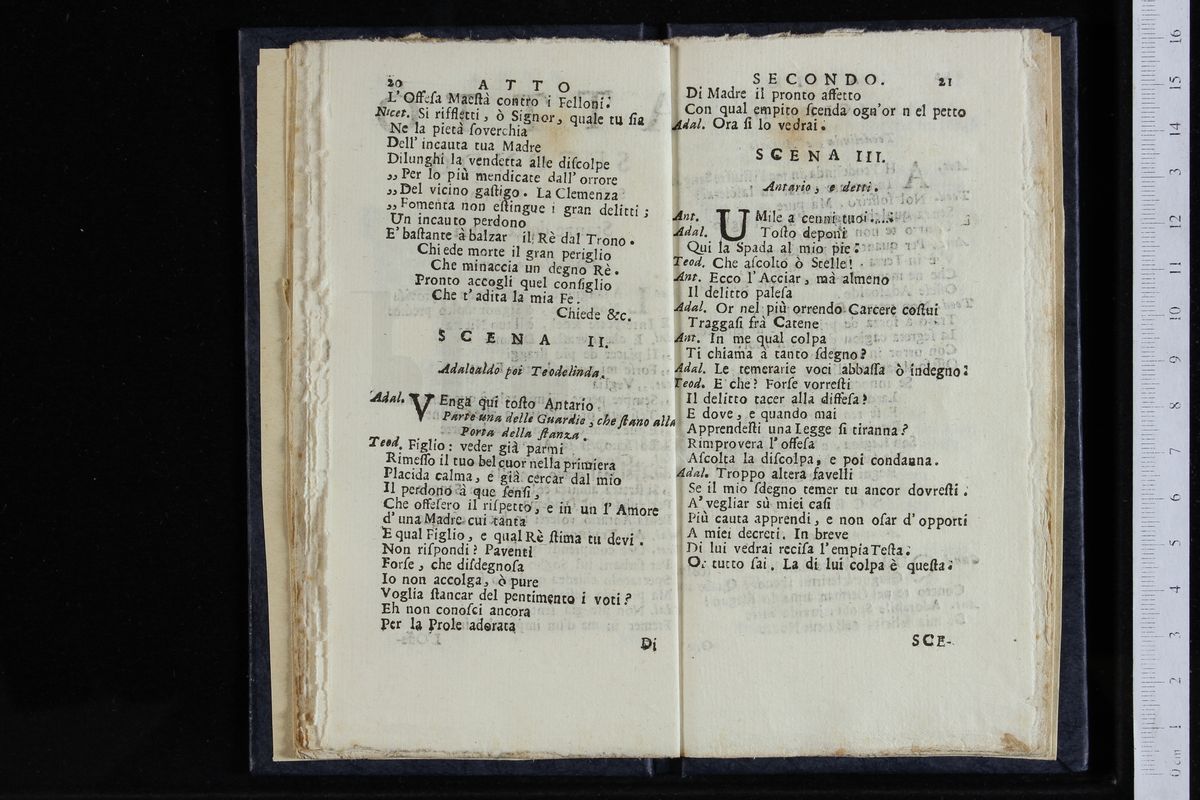 20 ATTO
L'Offeſa Maeſtà contro i Felloni.
Nicet. Si riffletti, ò Signor, quale tu ſia
Ne la pietà ſoverchia
Dell' incauta tua Madre
Dilunghi la vendetta alle diſcolpe
„ Per lo più mendicate dall' orrore
„ Del vicino gaſtigo. La Clemenza
„ Fomenta non eſtingue i gran delitti;
Un incauto perdono
E' baſtante à balzar il Rè dal Trono.
Chiede morte il gran periglio
Che minaccia un degno Rè.
Pronto accogli quel conſiglio
Che t' adita la mia Fe.
Chiede &c.
SCENA II.
Adaloaldo poi Teodelinda.
Adal. VEnga qui toſto Antario
Parte una delle Guardie, che ſtano alla
Porta della ſtanza.
Teod. Figlio: veder già parmi
Rimeſſo il tuo bel cuor nella primiera
Placida calma, e già cercar dal mio
Il perdono à que ſenſi,
Che offeſero il riſpetto, e in un l' Amore
d' una Madre cui tanta
E qual Figlio, e qual Rè ſtima tu devi.
Non riſpondi? Paventi
Forſe, che diſdegnoſa
Io non accolga, ò pure
Voglia ſtancar del pentimento i voti?
Eh non conoſci ancora
Per la Prole adorata
Di
SECONDO. 21
Di Madre il pronto affetto
Con qual empito ſcenda ogn'or n el petto
Adal. Ora ſi lo vedrai.
SCENA III.
Antario, e detti.
Ant. UMile a cenni tuoi....
Adal. Toſto deponi
Qui la Spada al mio piè:
Teod. Che aſcolto ò Stelle!
Ant. Ecco l' Acciar, mà almeno
Il delitto paleſa
Adal. Or nel più orrendo Carcere coſtui
Traggaſi frà Catene
Ant. In me qual colpa
Ti chiama à tanto ſdegno?
Adal. Le temerarie voci abbaſſa ò indegno:
Teod. E che? Forſe vorreſti
Il delitto tacer alla diffeſa?
E dove, e quando mai
Apprendeſti una Legge ſi tiranna?
Rimprovera l' offeſa
Aſcolta la diſcolpa, e poi condanna.
Adal. Troppo altera favelli
Se il mio ſdegno temer tu ancor dovreſti.
A' vegliar sù miei caſi
Più cauta apprendi, e non oſar d' opporti
A miei decreti. In breve
Di lui vedrai reciſa l'empia Teſta.
Or tutto ſai. La di lui colpa è queſta.
SCE-